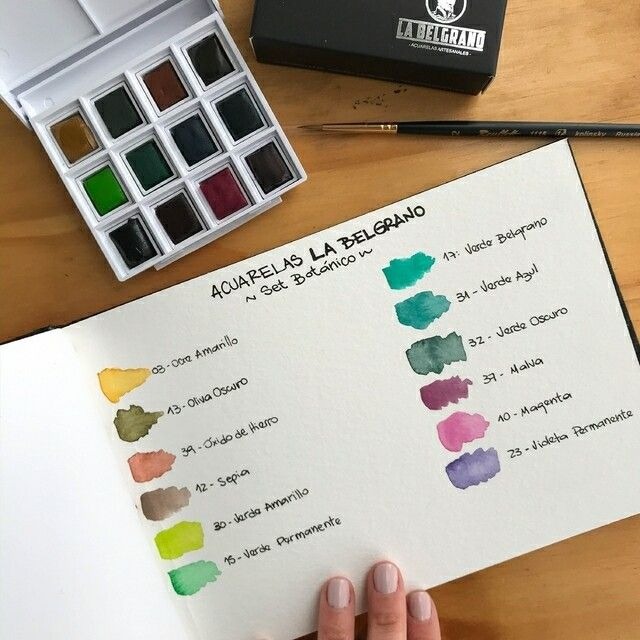 LA BELGRANO
- ACUARELAS ARTESANALES -
kolinsky
ACUARELAS LA BELGRANO
~ Set Botánico ~
03 - Ocre Amarillo
13 - Oliva Oscuro
39 - Óxido de Hierro
12 - Sepia
30 - Verde Amarillo
15 - Verde Permanente
17: Verde Belgrano
31 - Verde Azul
32 - Verde Oscuro
37 - Malva
10 - Magenta
23 - Violeta Permanente